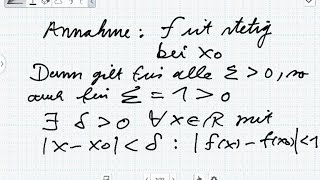 Annahme: f ist stetig
bei x₀
Dann gilt für alle ε > 0, so
auch für ε = 1 > 0
∃ δ > 0 ∀ x ∈ ℝ mit
|x - x₀| < δ : |f(x) - f(x₀)| < 1